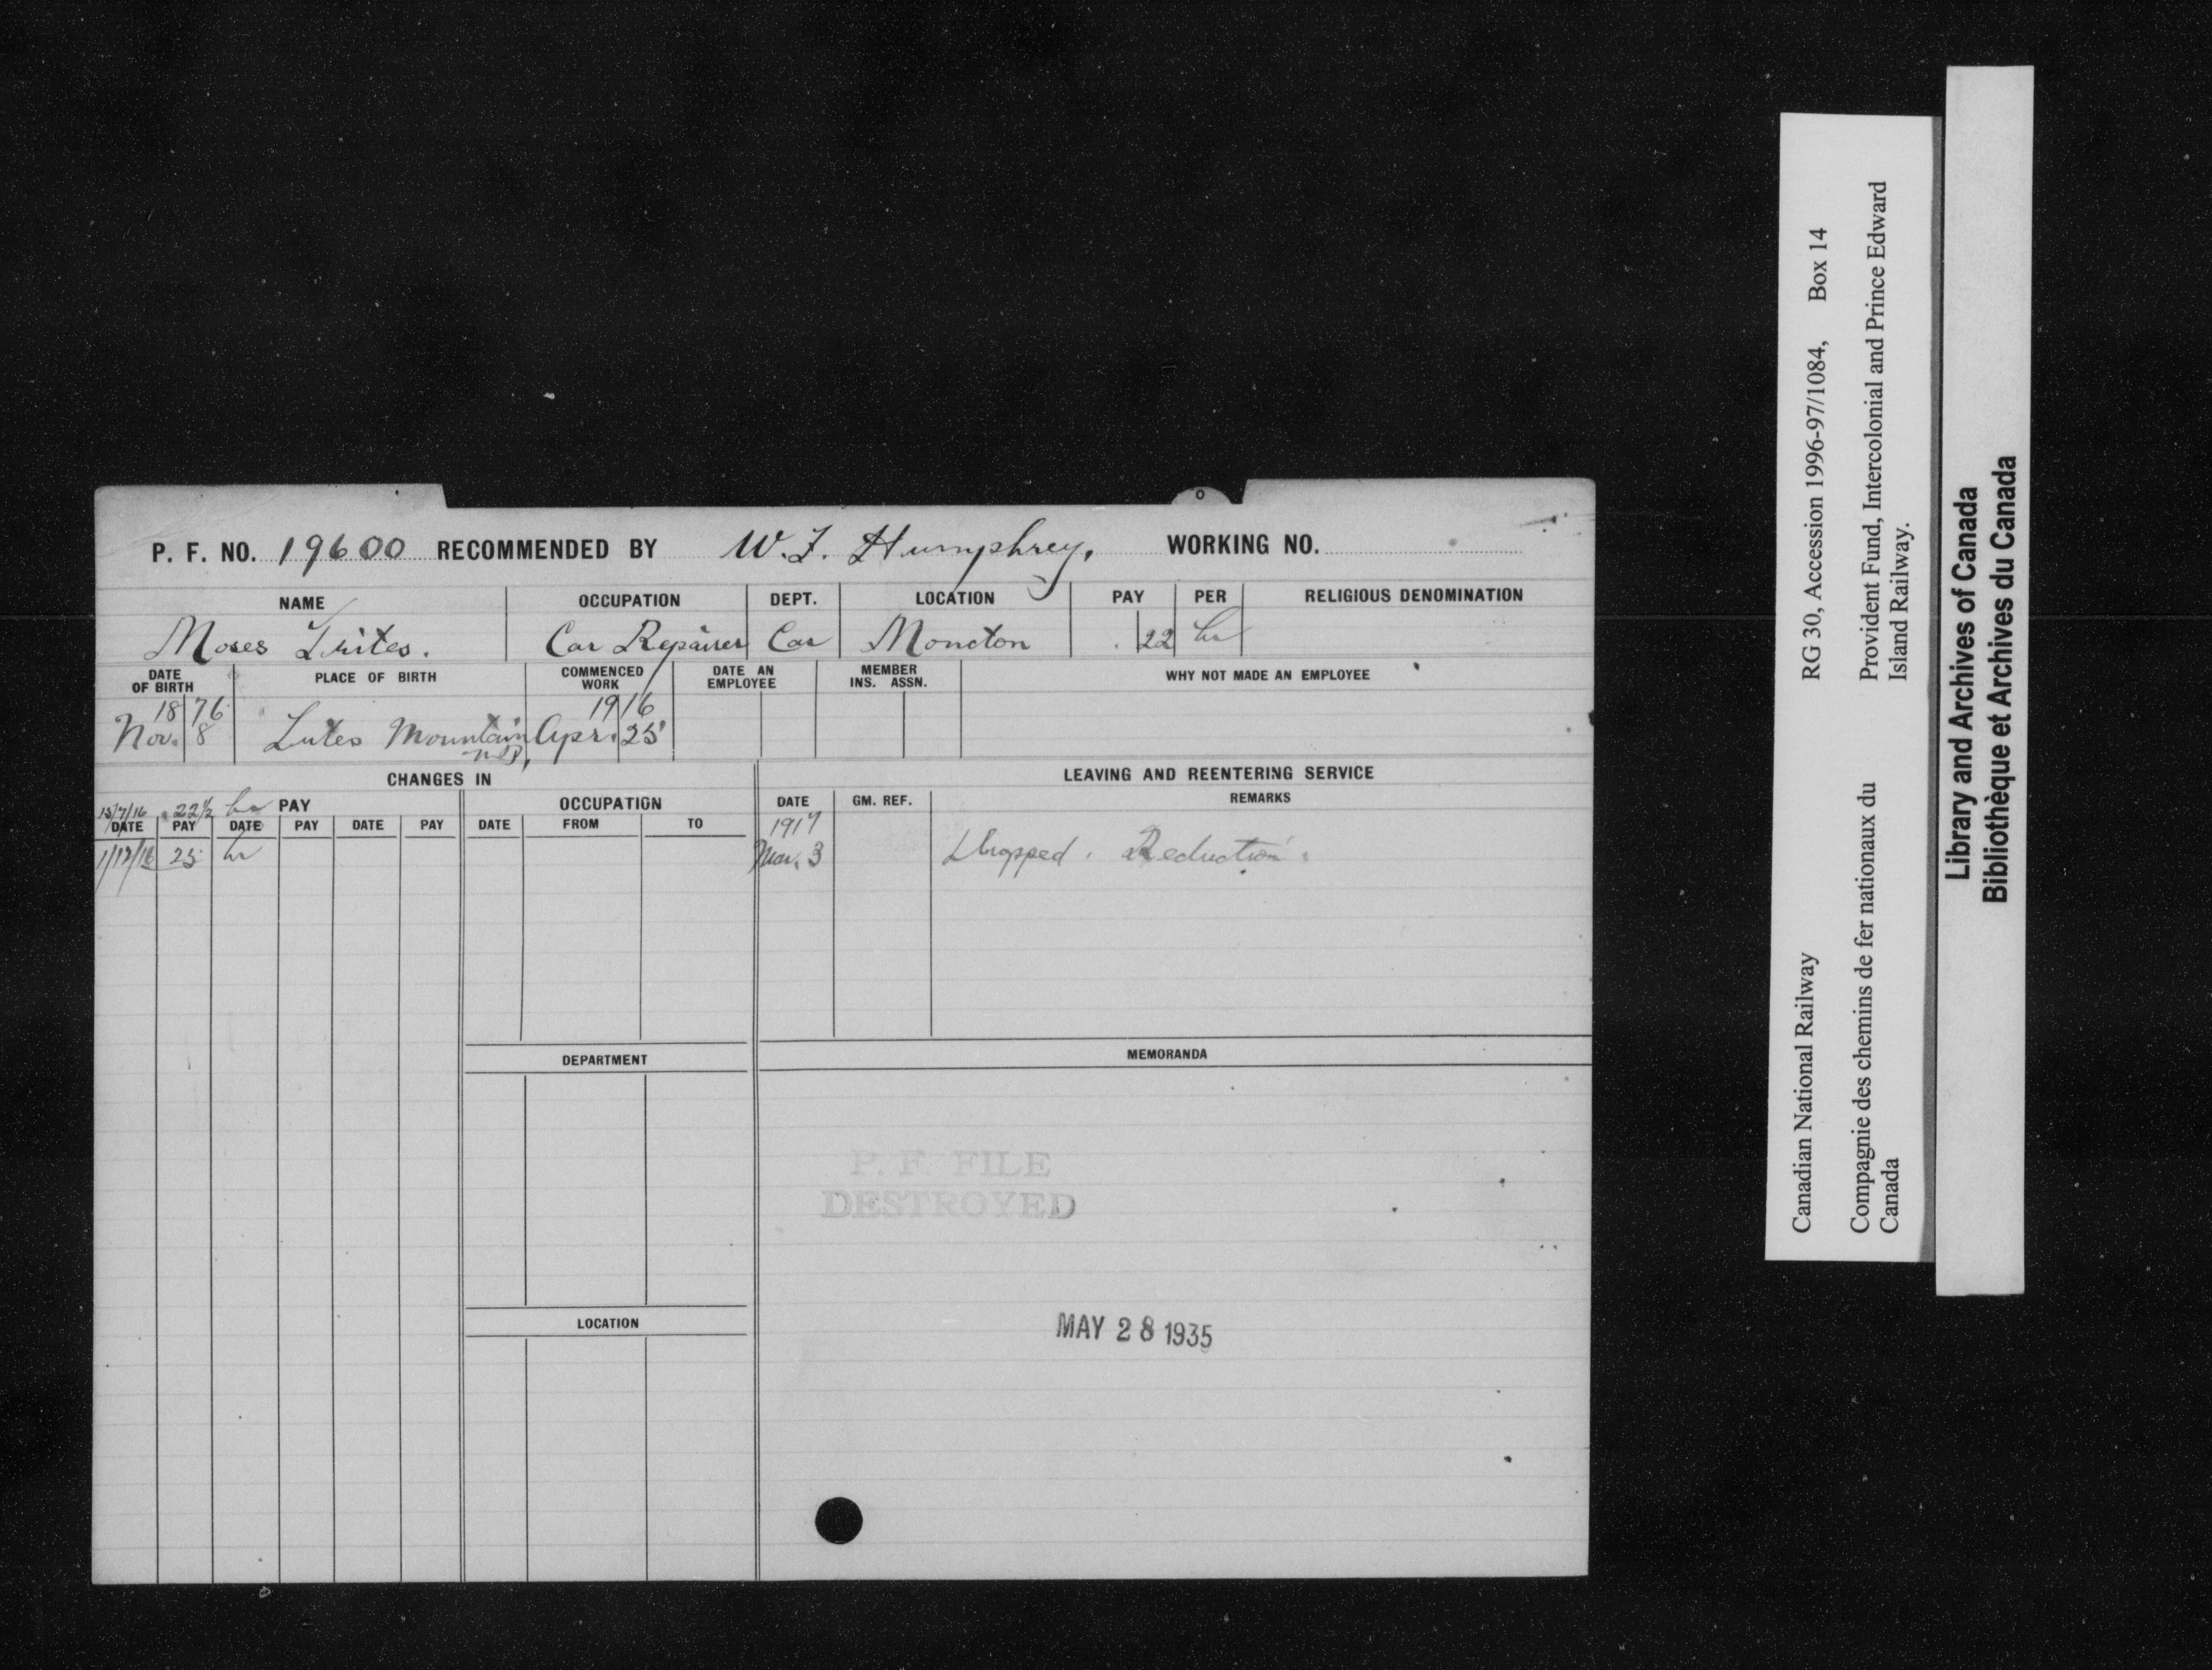 P. F. NO. 19600 RECOMMENDED BY W. F. Humphrey, WORKING NO.
NAME OCCUPATION DEPT. LOCATION PAY PER RELIGIOUS DENOMINATION
Moses Trites. Car Repairer Car Moncton .22 hr
DATE OF BIRTH PLACE OF BIRTH COMMENCED WORK DATE AN EMPLOYEE MEMBER INS. ASSN. WHY NOT MADE AN EMPLOYEE
1876 1916
Nov. 8 Lutes Mountain Apr. 25
N.B,
CHANGES IN LEAVING AND REENTERING SERVICE
15/7/16 .22½ hr PAY OCCUPATION DATE GM. REF. REMARKS
DATE PAY DATE PAY DATE PAY DATE FROM TO 1917
1/12/16 25 hr Mar. 3 Dropped. Reduction.
DEPARTMENT MEMORANDA
P. F. FILE
DESTROYED
LOCATION
MAY 28 1935
Canadian National Railway RG 30, Accession 1996-97/1084, Box 14
Compagnie des chemins de fer nationaux du Canada
Provident Fund, Intercolonial and Prince Edward Island Railway.
Library and Archives of Canada
Bibliothèque et Archives du Canada